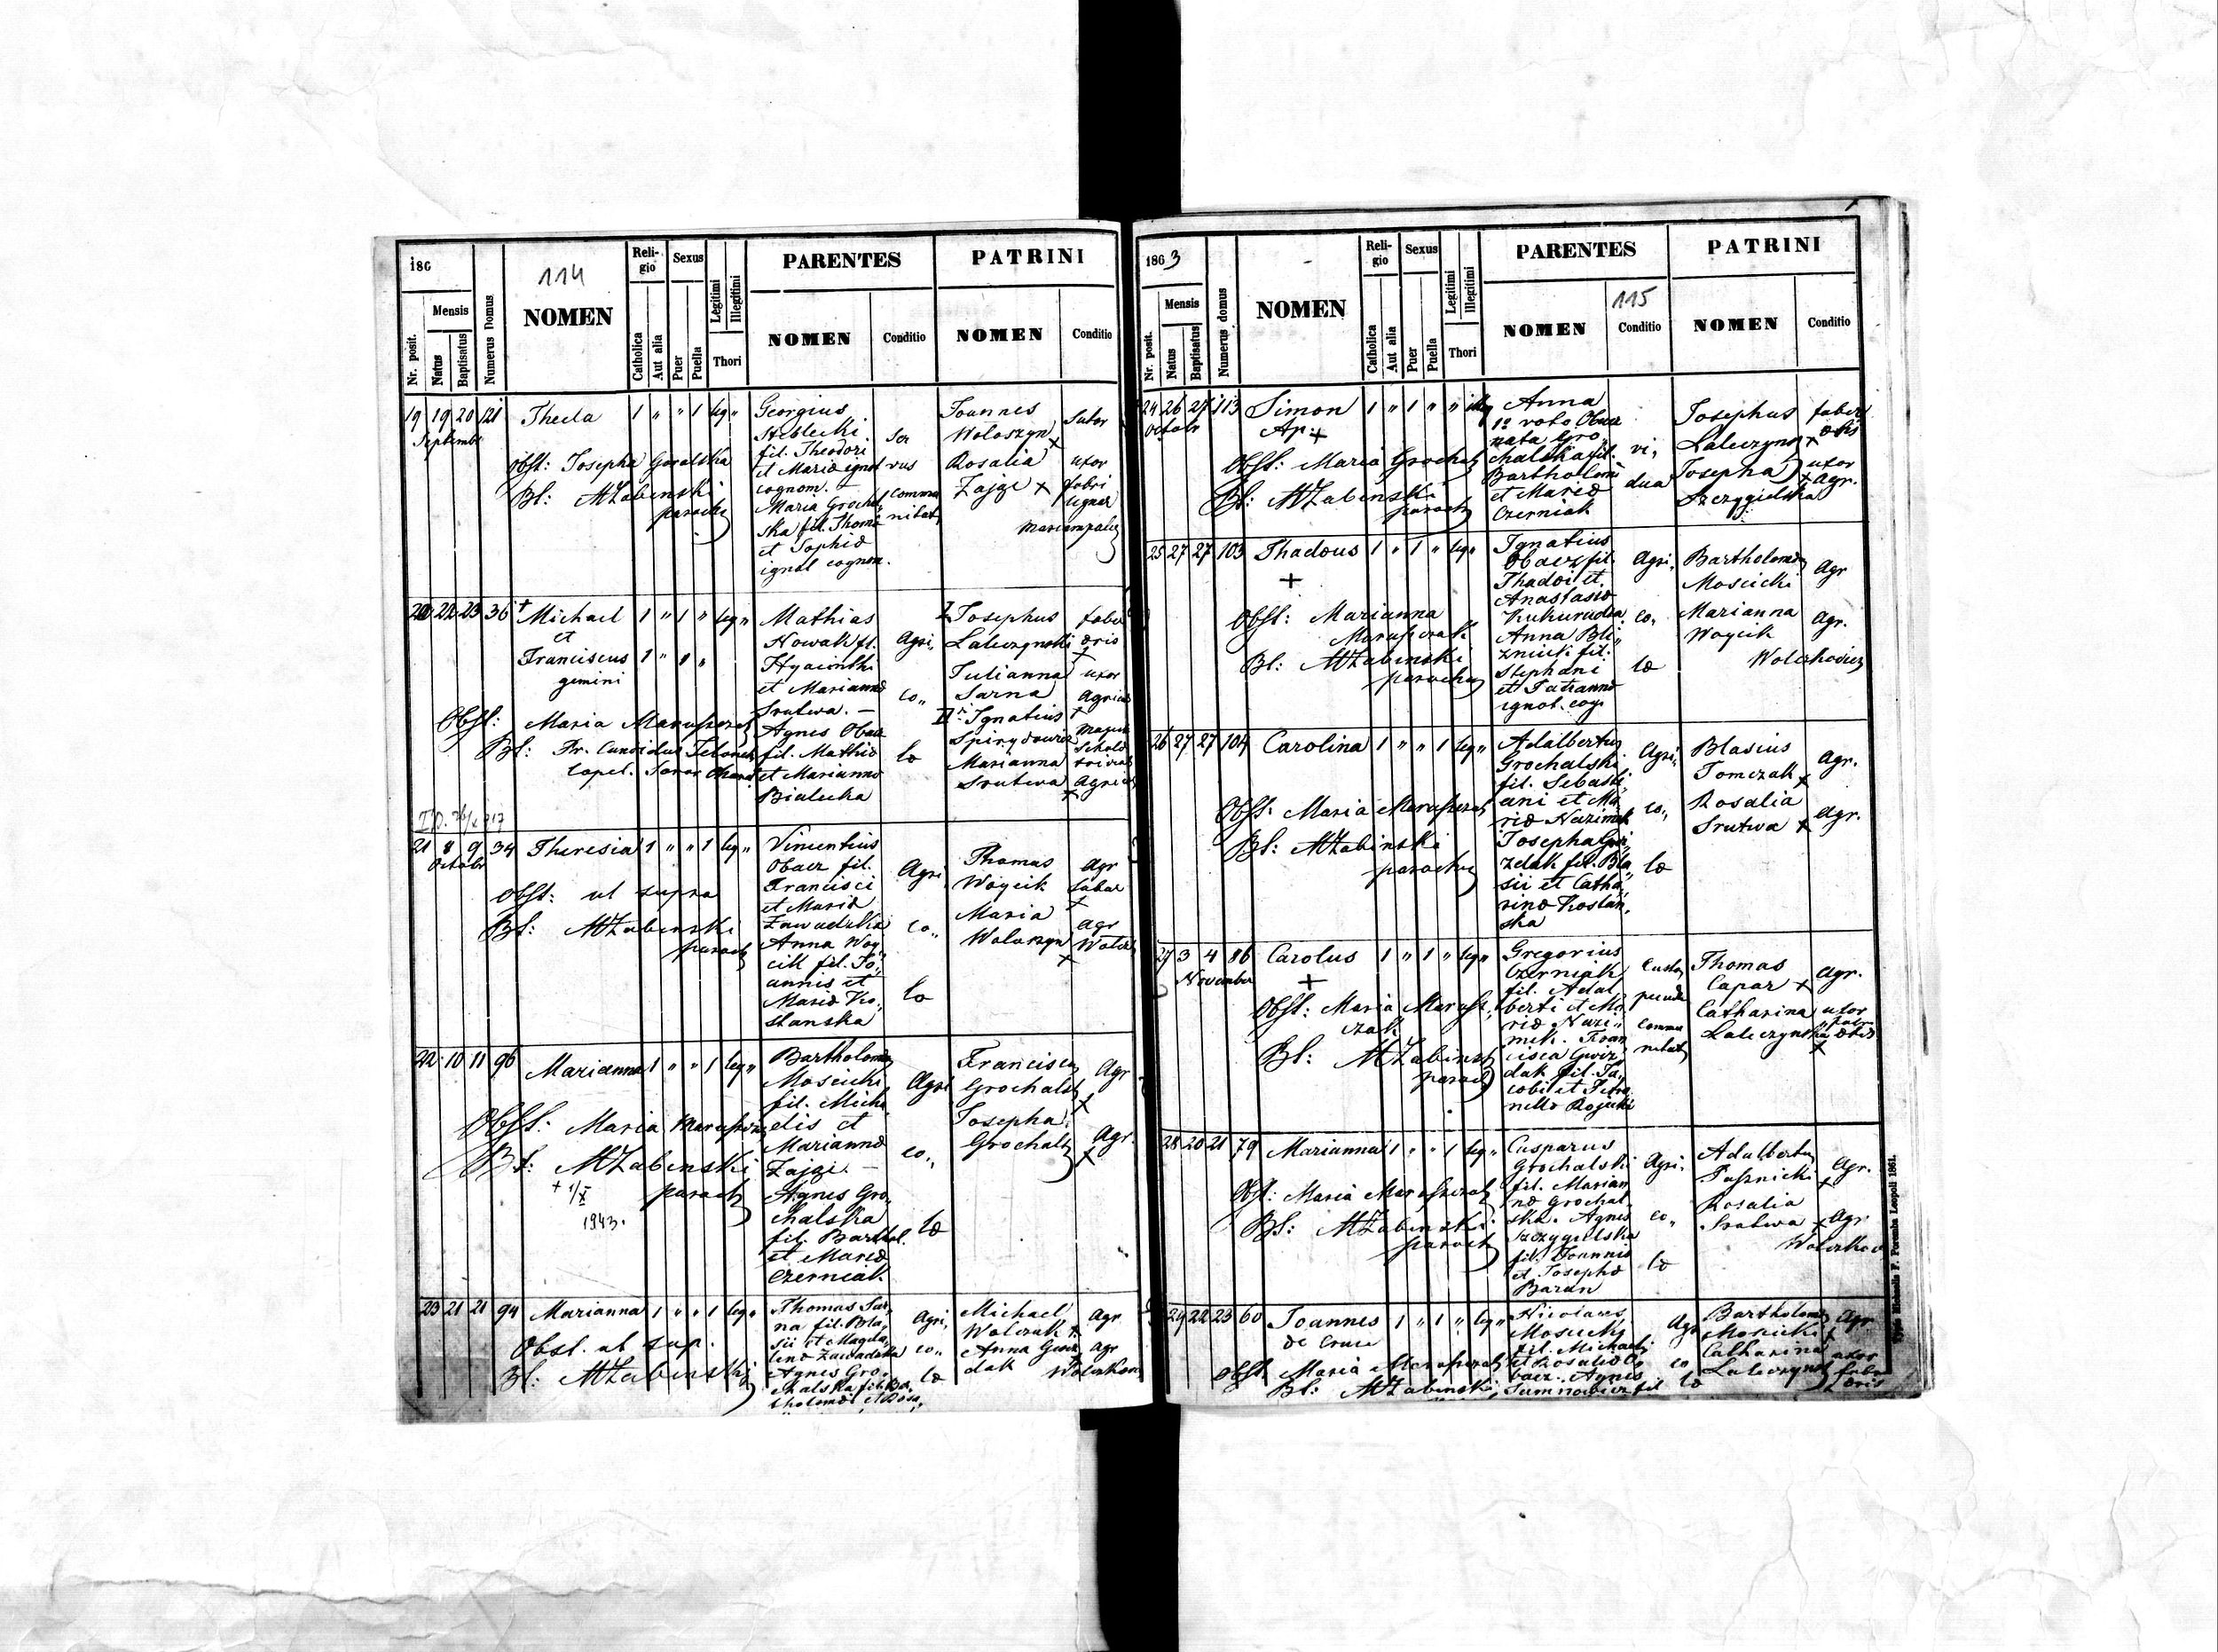 186
114
Nr. posit.
Mensis
Natus
Baptisatus
Numerus Domus
NOMEN
Religio
Catholica
Aut alia
Sexus
Puer
Puella
Legitimi
Illegitimi
Thori
PARENTES
NOMEN
Conditio
PATRINI
NOMEN
Conditio
19 19 20 121 Thecla 1 " " 1 leg "
Septembr
Obst: Josepha Goralska
Bl: MZabinski
parochs
Georgius
Steblecki
fil. Theodori
et Maria ignot
cognom. -
Maria Grochal
ska fil. Thoma
et Sophia
ignot cognom.
Ser
vus
commu
nitat
Joannes
Woloszyn
Rosalia
Zajge +
Sutor
uxor
fabri
lignar
Mariampoli
20 22 23 36 + Michael 1 " 1 " leg "
et
Franciscus 1 " 1 "
gemini
Obst: Maria Maruszczak
Bl: Fr. Candidus
Mathias
Nowak fil.
Hyacinthi
et Marianna
Srutwa. -
Agnes Obacz
fil. Mathia
et Marianna
Bialecka
Agri,
co,,
la
I Josephus
Laleczynski
Julianna
Sarna
II Ignatius
Marianna
Srutwa
fabri
oris
uxor
Agric
+
Agric
+
21 8 9 34 Theresia 1 " " 1 leg "
Octobr
Obst: ut supra
Bl: MZabinski
paroch
Vincentius
Obacz fil.
Francisci
et Maria
Zawadzka
Anna Woy
cik fil. Jo,
annis et
Maria Ko,
stanska
Agri
co,,
la
Thomas
Woycik
Maria
Woloszyn
+
Agr
fabar
+
Agr
22 10 11 96 Marianna 1 " " 1 leg "
Obst: Maria Maruszcza
Bl: MZabinski
paroch
+ 1/X
1943.
Bartholom
Moscicki
fil. Micha
elis et
Marianna
Zajgi. -
Agnes Gro,
chalska
fil. Barthol.
et Maria
Czerniak.
Agri
co,,
la
Franciscus
Grochals
Josepha
Grochals
Agr
+
Agr.
+
23 21 21 94 Marianna 1 " " 1 leg "
Obst. ut sup.
Bl: MZabinski
Thomas Sar,
na fil. Bla,
sii et Magda,
lena Zawadzka
Agnes Gro,
chalska fil. Ba,
Agri,
co,,
la
Michael
Walczak +
Anna Gwiz
dak
Agr
Agr
1863
115
Nr. posit.
Mensis
Natus
Baptisatus
Numerus domus
NOMEN
Religio
Catholica
Aut alia
Sexus
Puer
Puella
Legitimi
Illegitimi
Thori
PARENTES
NOMEN
Conditio
PATRINI
NOMEN
Conditio
24 26 27 113 Simon 1 " 1 " " illeg
Octobr
Ap: +
Obst: Maria Grochals
Bl: MZabinski
paroch
Anna
1o voto Obacz
nata Gro,
chalska fil.
Bartholom
et Maria
Czerniak
vi,
dua
Josephus
Laleczyns +
Josepha
Szczygielska
faber
oris
uxor
+ Agr.
25 27 27 103 Thadeus 1 " 1 " leg "
+
Obst: Marianna
Maruszczak
Bl: MZabinski
parochus
Ignatius
Obacz fil.
Thadei et
Anastasia
Kukurudza
Anna Bli,
zniuk fil.
Stephani
et Tatianna
ignot. cog.
Agri,
co,
la
Bartholom
Moscicki
Marianna
Woycik
Agr
Agr.
26 27 27 104 Carolina 1 " " 1 leg "
Obst: Maria Maruszczak
Bl: MZabinski
parochus
Adalbertus
Grochalski
fil. Sebasti,
ani et Ma,
ria Nazimek
Josepha Gwi,
zdak fil. Bla,
sii et Catha,
rina Kostan,
ska
Agri,
co,,
la
Blasius
Tomczak +
Rosalia
Srutwa +
Agr.
Agr.
27 3 4 86 Carolus 1 " 1 " leg "
November
+
Obst: Maria Marusz,
czak
Bl: MZabinski
paroch
Gregorius
Czerniak
fil. Adal,
berti et Ma
ria Nazi,,
mek. Fran
cisca Gwiz
dak fil. Ja,
cobi et Petro
nella
Custos
pecudu
commu
nitat
Thomas
Capar +
Catharina
Laleczynska
+
Agr.
uxor
fabri
oris
28 20 21 79 Marianna 1 " " 1 leg "
Obst: Maria Maruszczak
Bl: MZabinski
paroch
Casparus
Grochalski
fil. Marian
na Grochal
ska. Agnes
Szczygielska
fil. Joannis
et Josepha
Baran
Agri,
co,,
la
Adalbertus
Rosalia
Srutwa
Agr.
+
+ Agr
29 22 23 60 Joannes 1 " 1 " leg "
de Cruce
Obst: Maria Maruszczak
Bl: MZabinski
Moscicki
fil. Michaelis
et Rosalia O,
bacz. Agnes
Agr
co
la
Bartholom
Moscicki
Catharina
Laleczyns
Agr
+
uxor
fabri
oris